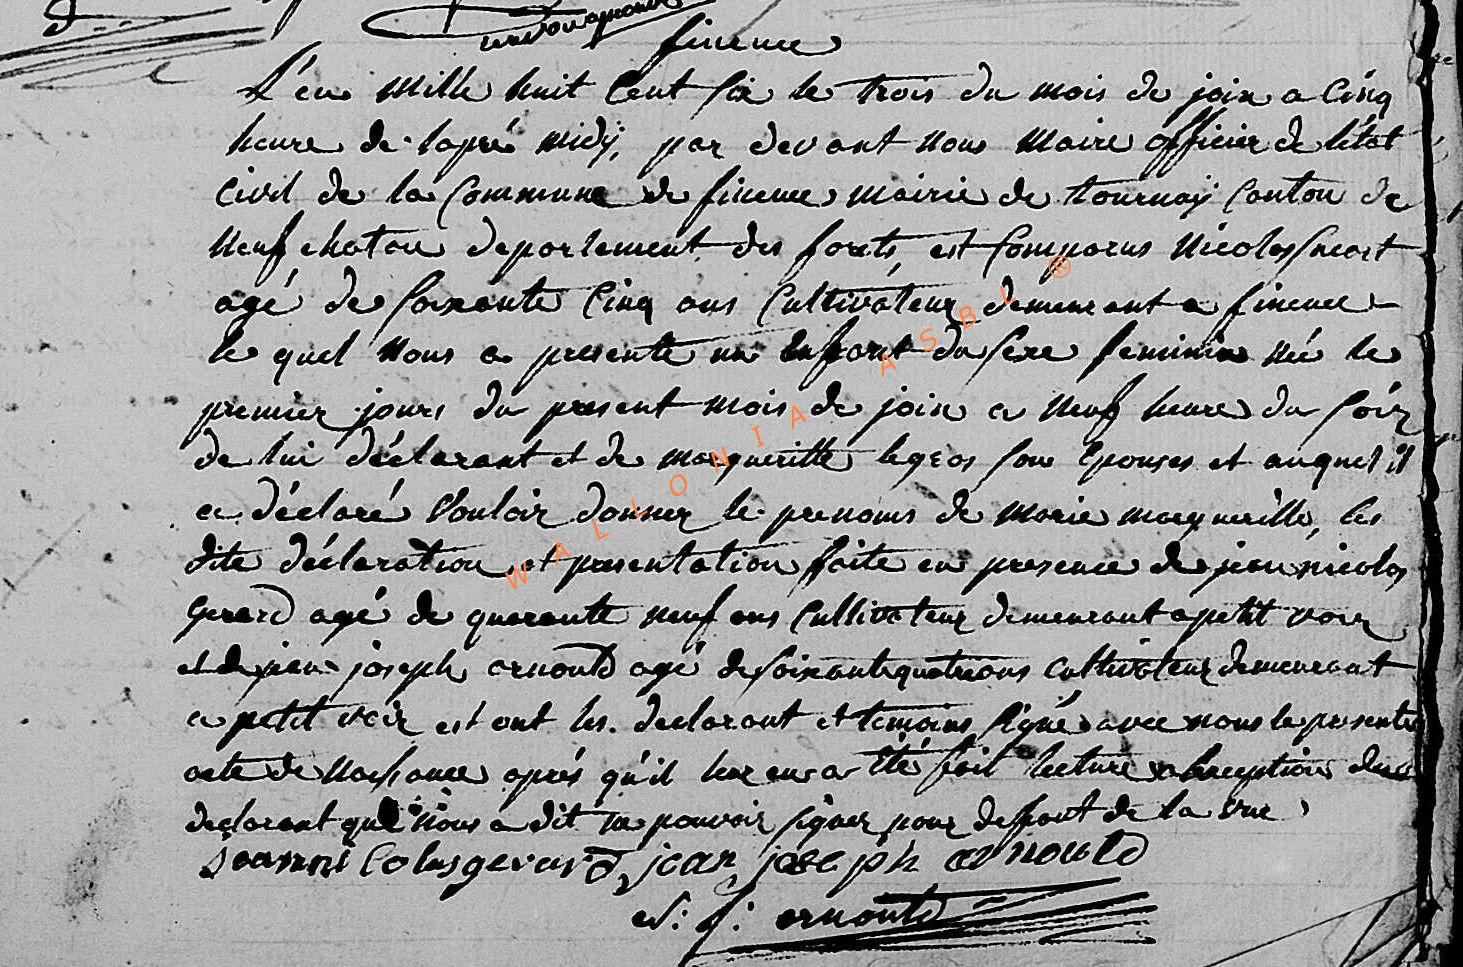 finence
L'én mille huit Cent six le trois du mois de join a Cinq
heure de laprés midÿ, par devant nous maire officier de létat
Civil de la Commune de finence mairie de tournaÿ Canton de
neufchatau departement des forets, est Comparus nicolas
agé de soixante Cinq ans Cultivateur demeurant a finence
le quel nous a presenté un enfant du sexe feminin née le
premier jours du present mois de join a neuf heure du soir
de lui déclarant et de margueritte legros son Epouses et auquel il
a déclaré vouloir donner le prenoms de marie margueritte, les
dite déclaration et presentation faite en presence de jean nicolas
Gerard agé de quarante neuf ans Cultivateur demeurant a petit voir
et de jean joseph arnould agé de soixante quatre ans cultivateur demeurant
a petit voir et ont les declarant et temoins signé avec nous le presente
acte de naissance aprés qu'il leur en a été fait lecture a lexception du
declarant qui nous a dit ne pouvoir signer pour deffaut de la vue
Joannni Colas gerard jean joseph arnould
N: J: arnould
WALLONIA ASBL ®